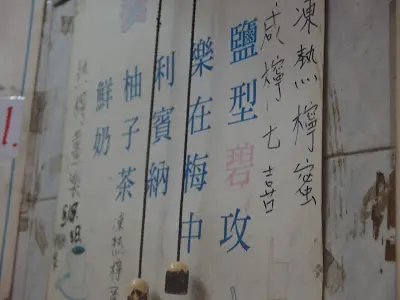 凍熱檸蜜
咸檸七喜
鹽型碧攻
樂在梅中
利賓納
柚子茶
鮮奶
凍熱檸